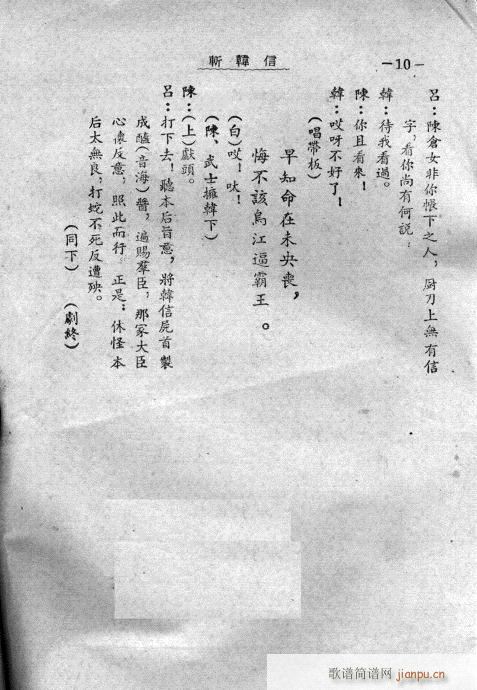 斬韓信
—10—
呂：陳倉女非你帳下之人，厨刀上無有信
字，看你尚有何說：
韓：待我看過。
陳：你且看來！
韓：哎呀不好了！
（唱帶板）
早知命在未央喪，
悔不該烏江逼霸王。
（白）哎！吠！
（陳、武士擁韓下）
陳：（上）獻頭。
呂：打下去！聽本后旨意，將韓信屍首製
成醢（音海）醬，遍賜羣臣，那家大臣
心懷反意，照此而行。正是：休怪本
后太無良，打蛇不死反遭殃。
（同下）（劇終）
歌谱简谱网 jianpu.cn